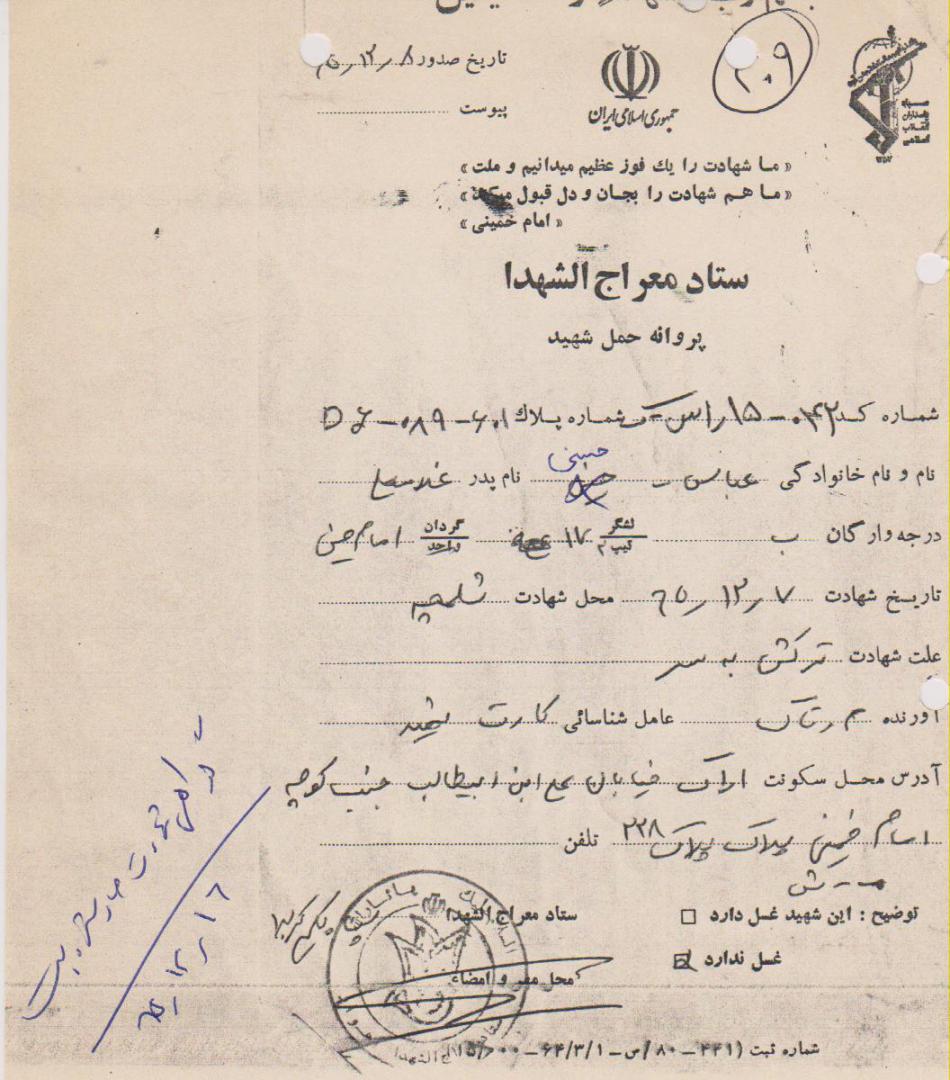 ۲۰۹
تاریخ صدور ۶۵/۱۲/۸
جمهوری اسلامی ایران
پیوست
« ما شهادت را یك فوز عظیم میدانیم و ملت »
« ما هم شهادت را بجان و دل قبول میکند »
« امام خمینی »
ستاد معراج الشهدا
پروانه حمل شهید
شماره کد ۰۴۲-۱۵ شماره پلاك DJ-۰۸۹-۶۰۱
حبیبی
نام و نام خانوادگی عباس نام پدر غلامعلی
درجه وارگان ب لشگر تیپ ۱۷ گردان واحد امام حسن
تاریخ شهادت ۶۵/۱۲/۷ محل شهادت شلمچه
علت شهادت ترکش به سر
آورنده عامل شناسائی کارت شهید
آدرس محل سکونت اراک خیابان علی ابن ابیطالب جنب کوچه
امام خمینی پلاک پلاک ۲۲۸ تلفن
توضیح : این شهید غسل دارد □ ستاد معراج الشهدا
غسل ندارد ☒ محل مهر و امضاء
۶۵/۱۲/۱۶
شماره ثبت (۴۴۱-۸۰/س-۶۴/۳/۱-۱۵/۰۰۰)